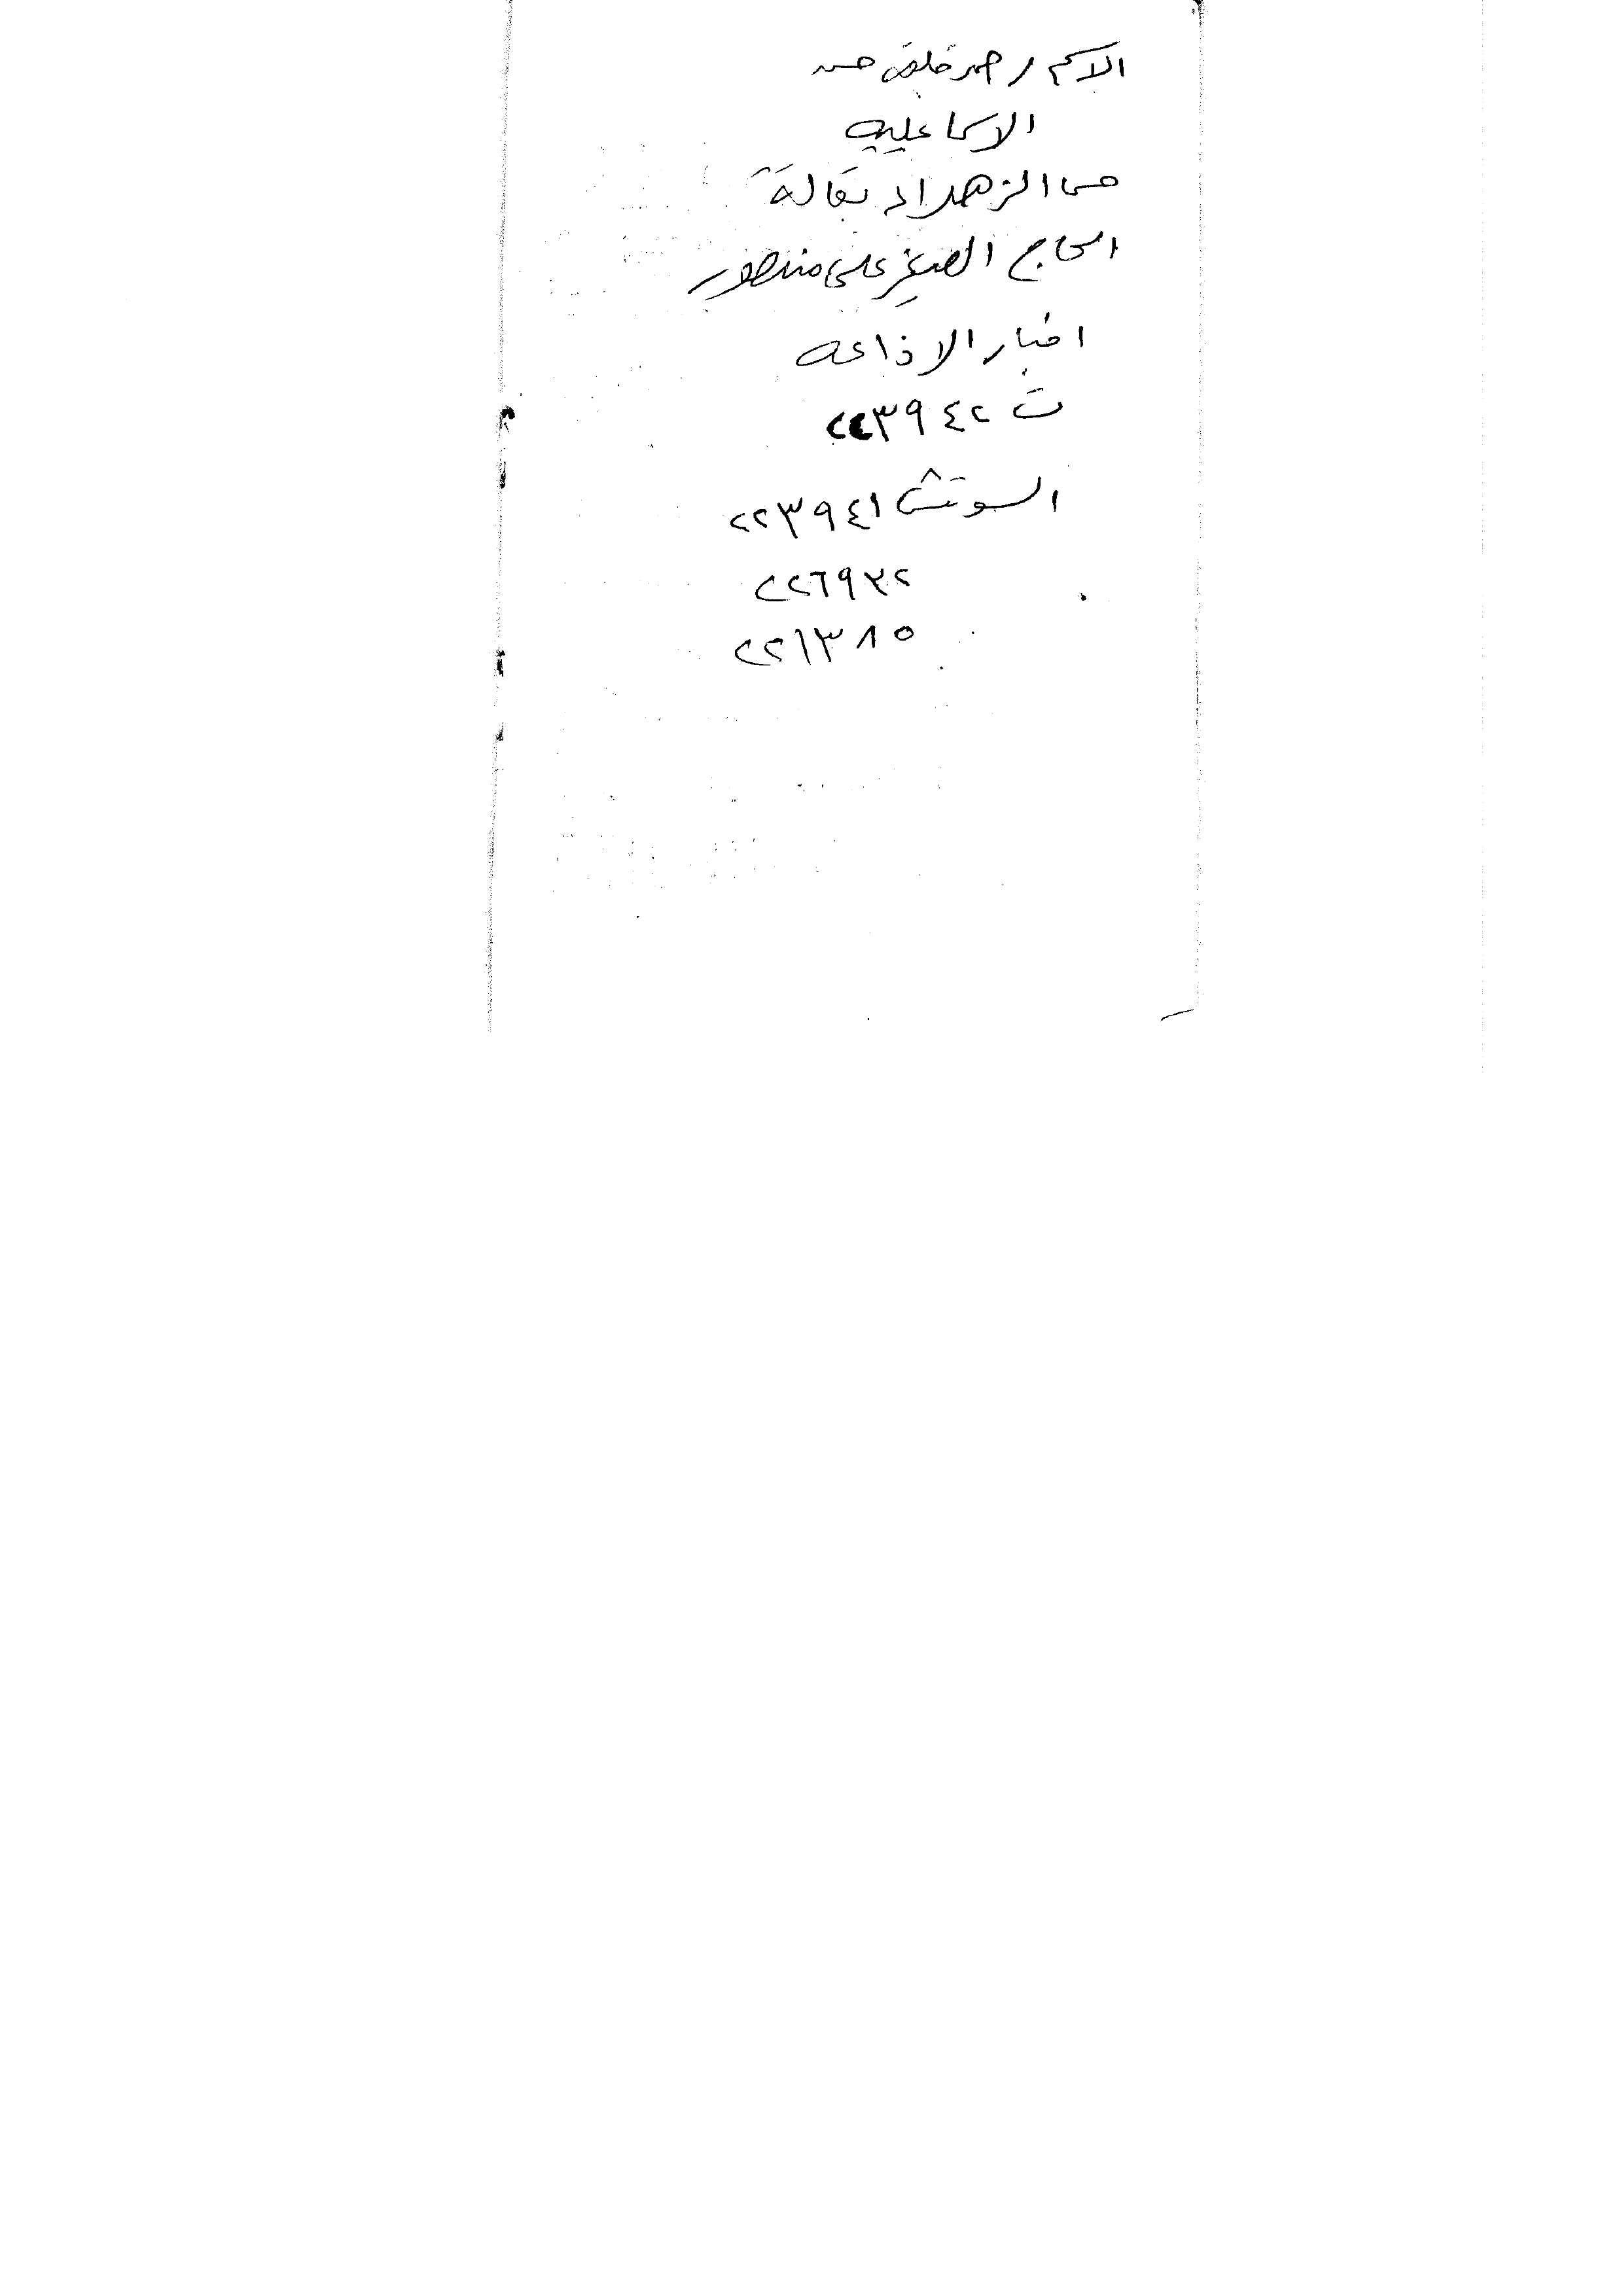 الاسم / حمد خلف حسن
الاسماعليه
حى الزهراء بقالة
الحاج الصغير على منصور
اخبار الاذاعه
ت ٢٢٣٩٤٢
السوتش ٢٢٣٩٤١
٢٢٦٩٣٢
٢٢١٣٨٥